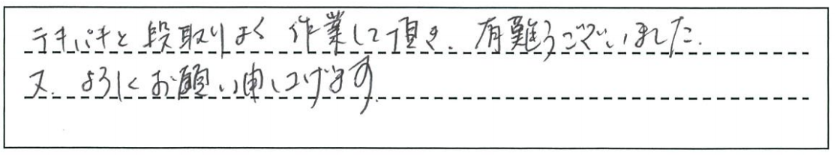 テキパキと段取りよく作業して頂き、有難うございました。
又、よろしくお願い申し上げます。